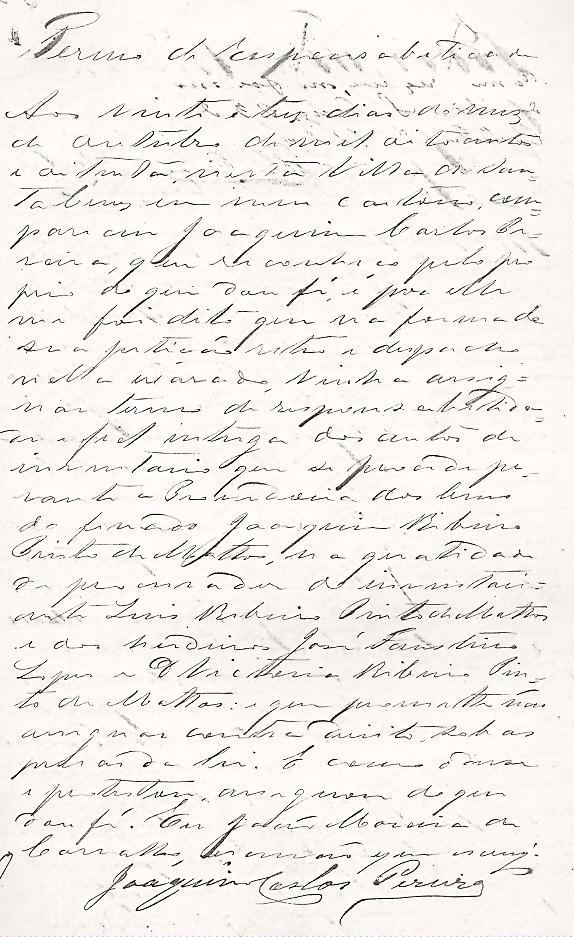 Termo de responsabilidade
Aos vinte e tres dias do mez
de outubro de mil oitocentos
e oitenta, nesta Villa de San-
em meu cartorio, com-
pareceu Joaquim Carlos Pe-
reira, que reconheço pelo pro
prio de que dou fé, e por elle
me foi dito que na forma de
sua petição retro e despacho
nella exarado, vinha assig-
nar termo de responsabilida-
de e fiel intrega dos autos de
inventario que se procede pe-
rante a Provedoria dos bens
do finado Joaquim Ribeiro
Pinto de Mattos, na qualidade
de procurador do inventari-
ante Luis Ribeiro Pinto de Mattos
e dos herdeiros José Faustino
Lopes e D Victoria Ribeiro Pin-
to de Mattos: e que promette não
contra direito sob as
penas da lei. E como disse
e protestou, assignou de que
dou fé. Eu João Moreira de
Carvalho, escrivão que escrevi.
Joaquim Carlos Pereira